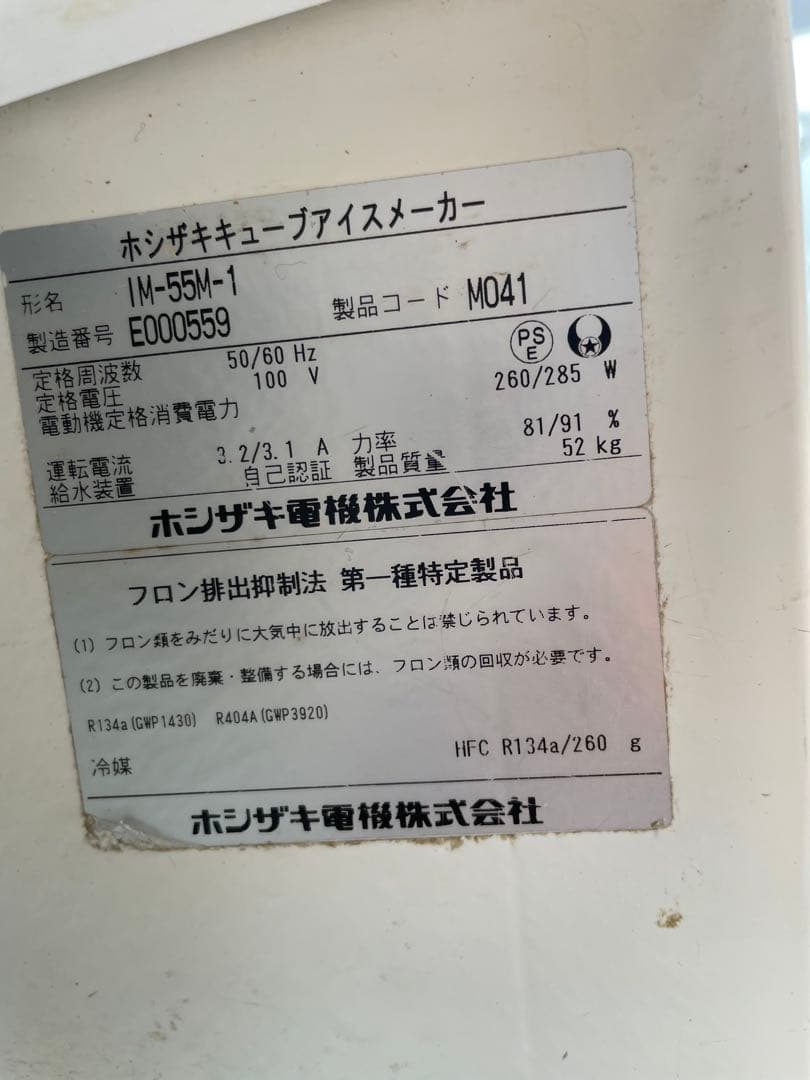 ホシザキキューブアイスメーカー
形名 IM-55M-1
製造番号 E000559 製品コード M041
定格周波数 50/60 Hz
PS E
定格電圧 100 V
電動機定格消費電力 260/285 W
運転電流 3.2/3.1 A 力率 81/91 %
給水装置 自己認証 製品質量 52 kg
ホシザキ電機株式会社
フロン排出抑制法 第一種特定製品
(1) フロン類をみだりに大気中に放出することは禁じられています。
(2) この製品を廃棄・整備する場合には、フロン類の回収が必要です。
R134a(GWP1430) R404A(GWP3920)
冷媒 HFC R134a/260 g
ホシザキ電機株式会社